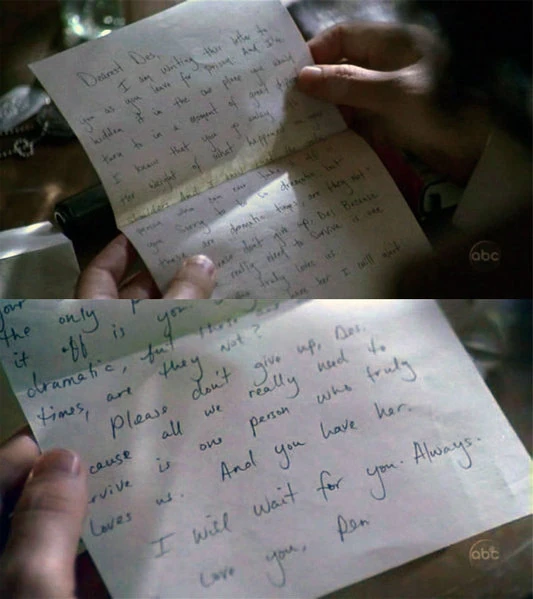 Dearest Des,
I am writing this letter to
you as you leave for prison. And I've
hidden it in the one place you would
turn to in a moment of great
I know that you go away
the weight of what happened on your
shoulders. And I
person who can ever take it off is
you. Sorry to be so dramatic but
these are dramatic times, are they not?
Please don't give up, Des. Because
really need to survive is one
who truly loves us.
have her. I will wait
abc
your
the only
it off is you.
dramatic, but these are
times, are they not?
Please don't give up, Des.
cause all we really need to
rvive is one person who truly
loves us. And you have her.
I will wait for you. Always.
Love you, Pen
abc